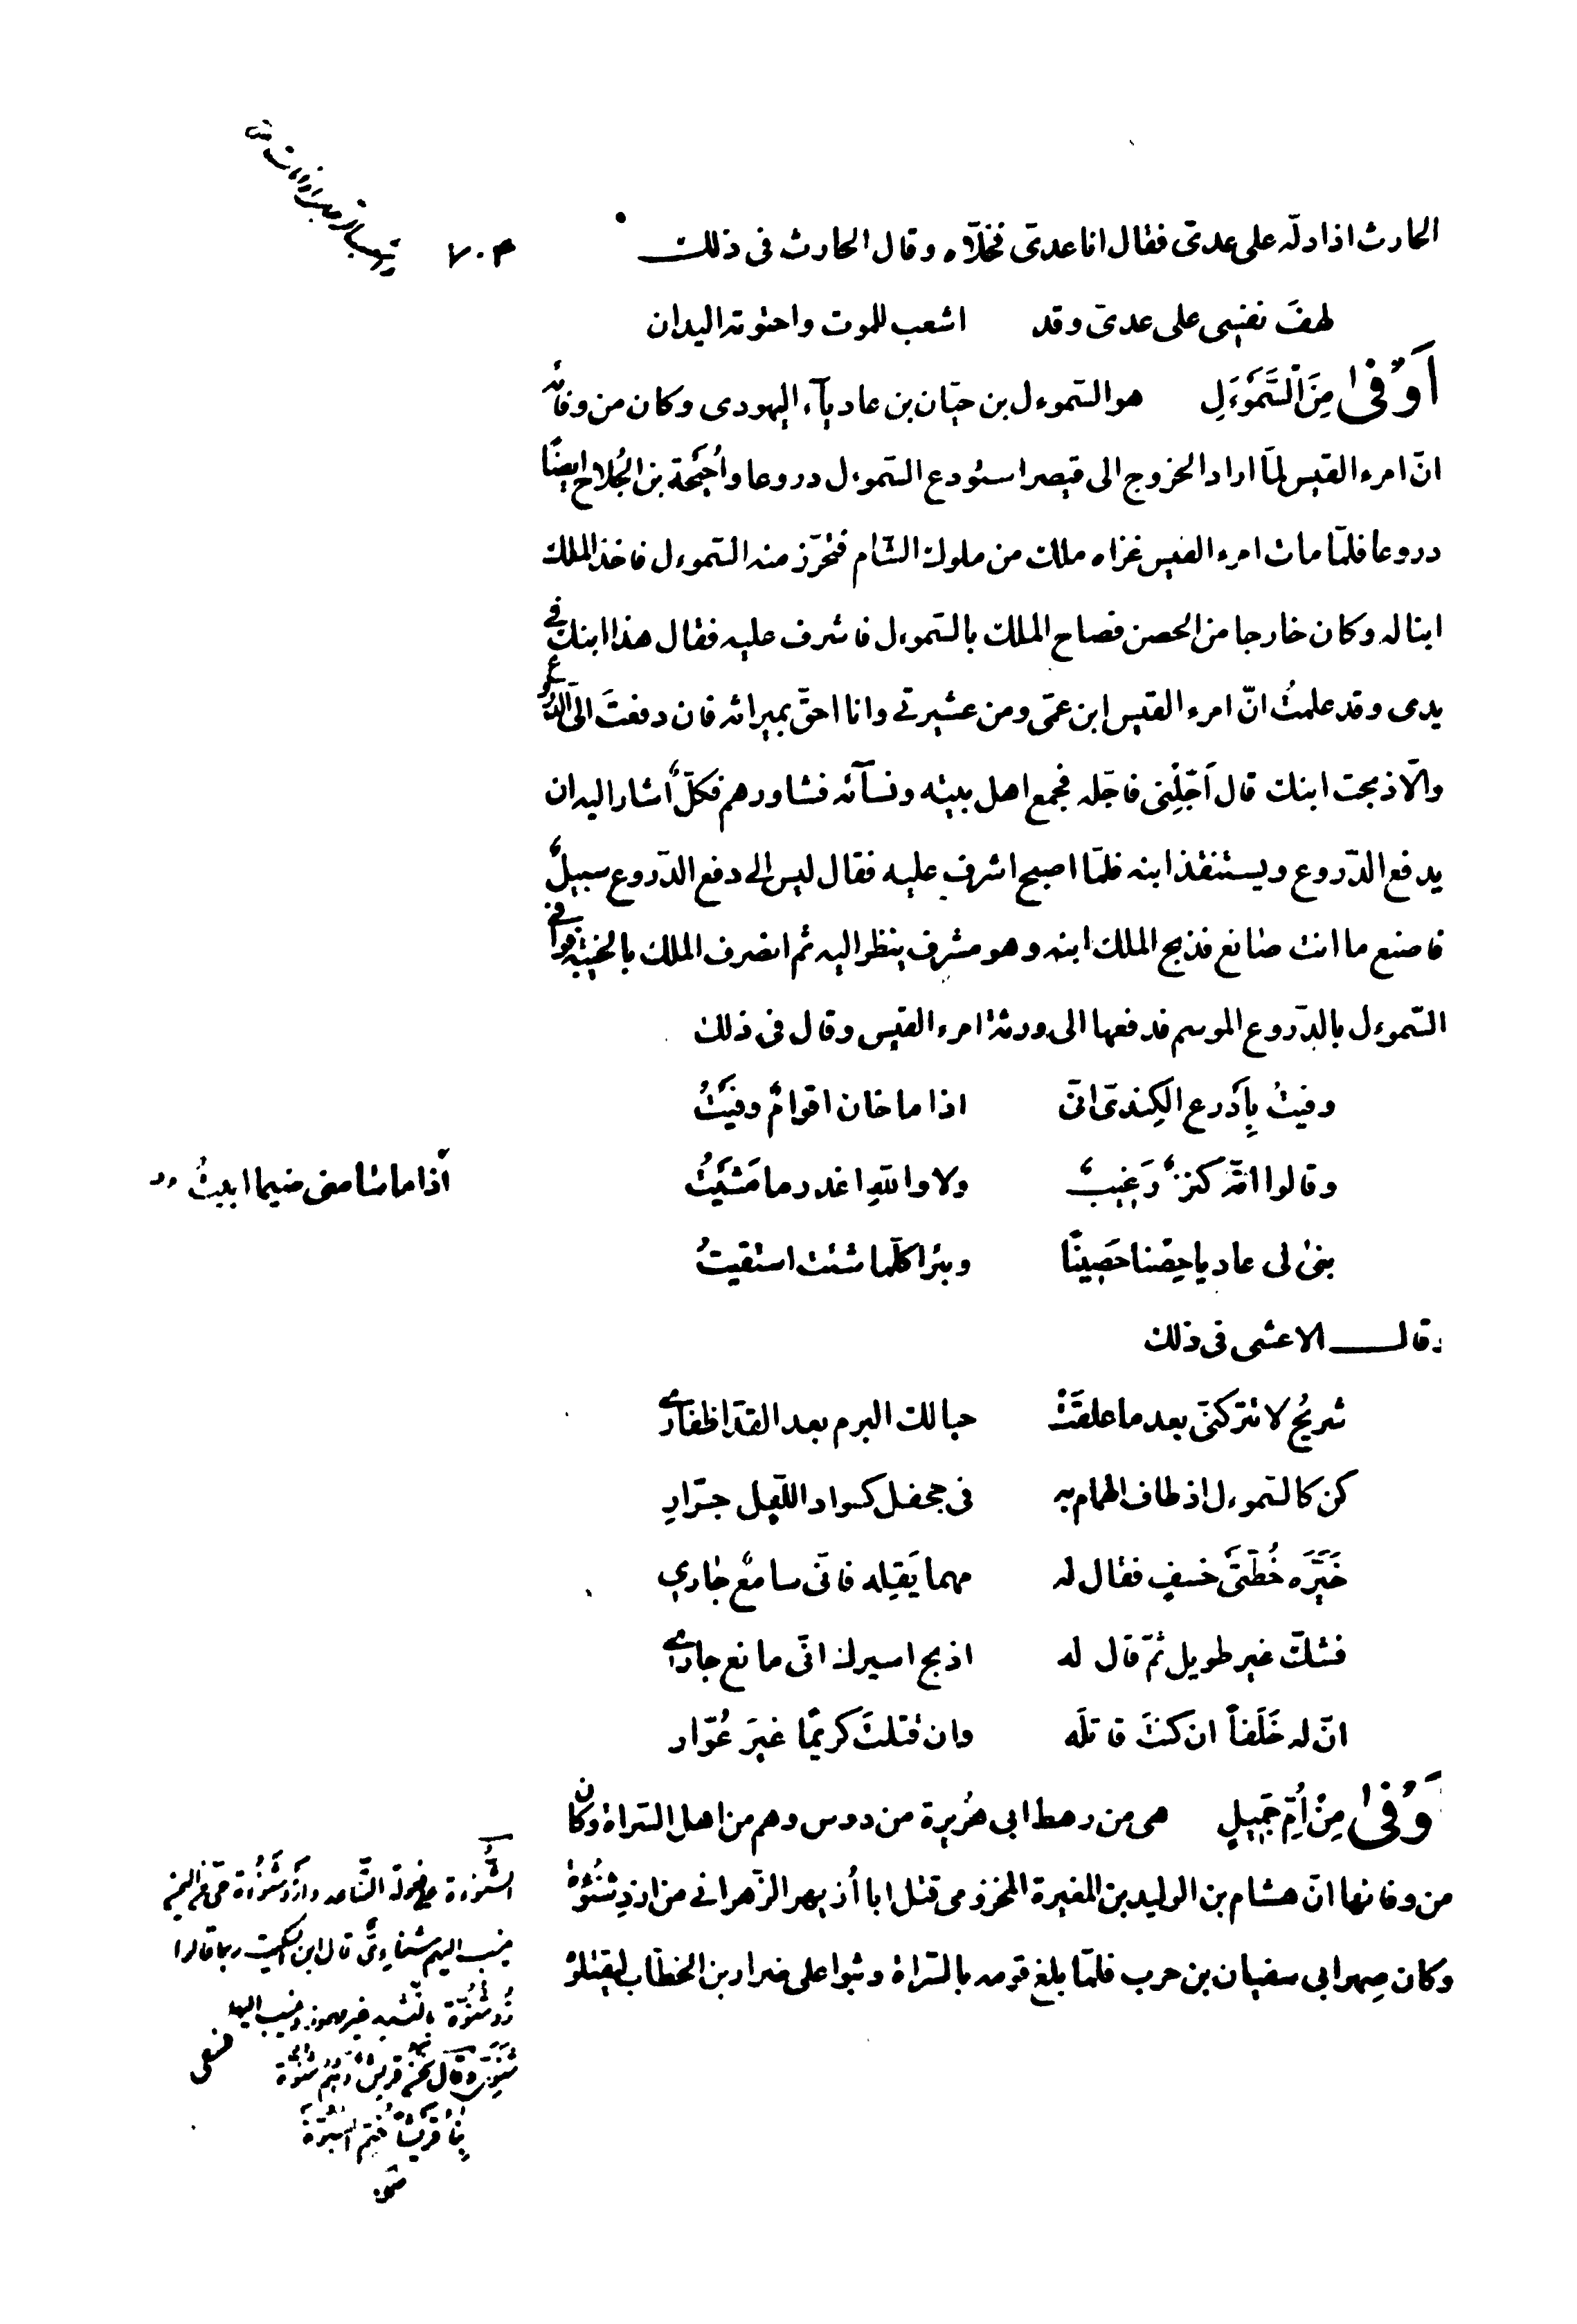 الحارث اذا دلّه على عدىّ فقال انا عدىّ فخلّاه وقال الحارث فى ذلك
٧٠٣
لهفَ نفسى على عدىّ وقد اشعب للموت واحتوته اليدان
اَوْفىٰ مِنَ الْسَّمَوْءَلِ هو السّموءل بن حيّان بن عاديآء اليهودى وكان من وفائه
انّ امرء القيس لمّا اراد الخروج الى قيصر استودع السّموءل دروعا واُحَيْحَة بن الجُلاح ايضًا
دروعا فلمّا مات امرء القيس غزاه ملك من ملوك الشّام فتحرّز منه السّموءل فاخذ الملك
ابنا له وكان خارجا من الحصن فصاح الملك بالسّموءل فاشرف عليه فقال هذا ابنك فى
يدى وقد علمتُ انّ امرء القيس ابن عمّى ومن عشيرتى وانا احقّ بميراثه فان دفعتَ الىّ الدّروع
والّا ذبحت ابنك قال اَجِّلْنى فاجّله فجمع اهل بيته ونسآئه فشاورهم فكلٌّ اشار اليه ان
يدفع الدّروع ويستنقذ ابنه فلمّا اصبح اشرف عليه فقال ليس الى دفع الدّروع سبيلٌ
فاصنع ما انت صانع فذبح الملك ابنه وهو مشرف ينظر اليه ثم انصرف الملك بالخيبة فوافى
السّموءل بالدّروع الموسم فدفعها الى ورثة امرء القيس وقال فى ذلك
وفيتُ بِاَدْرع الكِندىّ انّى اذا ما خان اقوامٌ وفَيْتُ
وقالوا انّه كنزٌ رَغيبٌ ولا واللّهِ اغدر ما مَشَيْتُ
اذا ما سامنى ضيما ابيتُ
بنىٰ لى عاديا حِصْنا حَصِينًا وبئرا كلّما شئت استقيتُ
وقال الاعشى فى ذلك
شريحُ لا تتركنّى بعد ما علقَتْ حبالك اليوم بعد القدّ اظفارى
كن كالسّموءل اذ طاف الهمام به فى جحفل كسواد اللّيل جرّارِ
خَيَّرَه خُطَّتَىْ خسفٍ فقال له مهما يَقِله فانّى سامعٌ جارى
فشكّ غير طويل ثمّ قال له اذبح اسيرك انّى مانع جارى
انّ له خَلَفاً ان كنتَ قاتلَه وان قتلتَ كريمًا غيرَ عُوّار
اَوْفىٰ مِنْ اُمِّ جَميلٍ هى من رهط ابى هُريرة من دوس وهم من اهل السّراة وكان
من وفائها انّ هشام بن الوليد بن المغيرة المخزومى قتل ابا اُزيهر الزّهرانى من ازدِ شَنُوْئَة
وكان صِهر ابى سفيان بن حرب فلمّا بلغ قومه بالسّراة وثبوا على ضرار بن الخطّاب ليقتلوْ
ينسب اليهم شنائىٌّ قال ابن السكيت ربما قالوا
شَنُوّة بالتشديد غير مهموز وينسب اليها
شَنَوىّ وقال نحن قريش وهم شنوّة
بنا قريشاً خُتم النبوّة